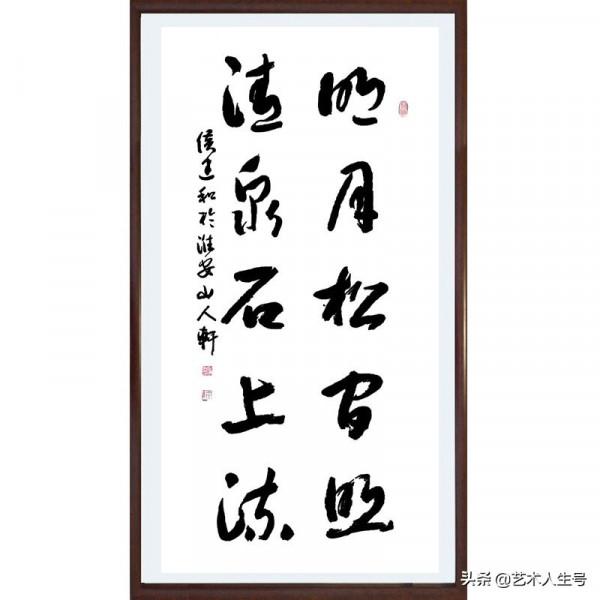 明月松间照
清泉石上流
侯建和於淮安山人軒
头条 @艺术人生号